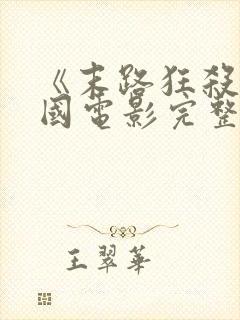 《末路狂殺
國電影完整
王翠華